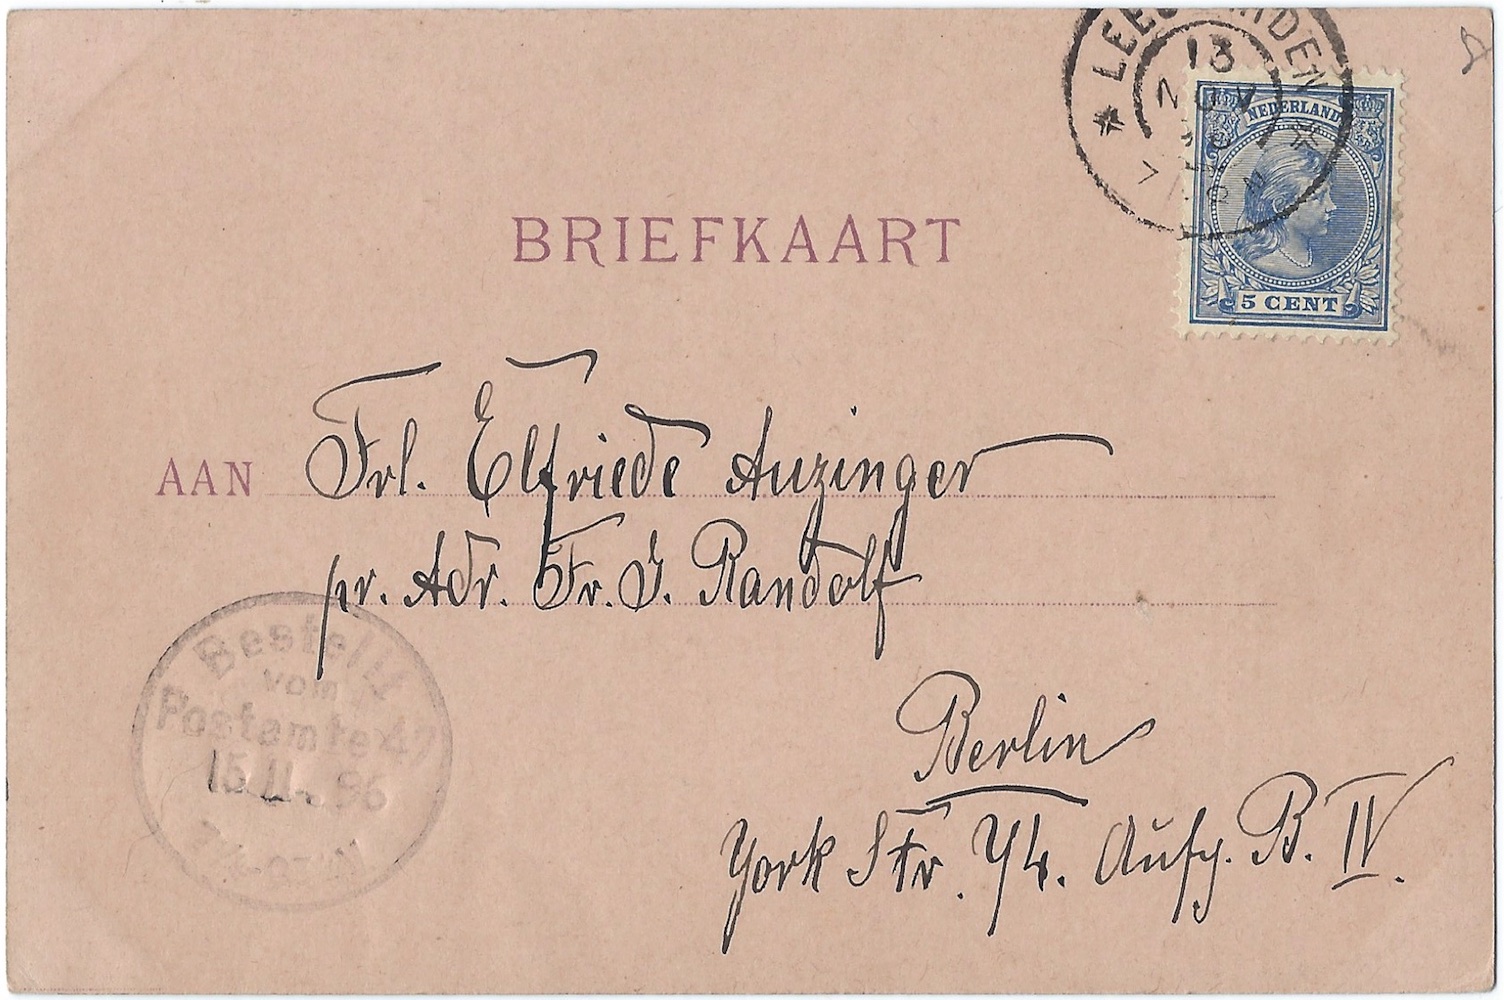 LEEUWARDEN
13
NOV
NEDERLAND
5 CENT
BRIEFKAART
AAN Frl. Elfriede Anzinger
pr. Adr. Fr. J. Randolf
Berlin
York Str. 74. Aufg. B. IV.
Bestellt
vom
Postamte 47
15.11. 96